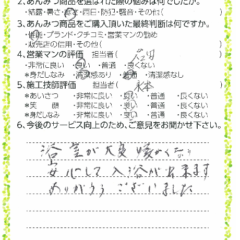 2.あんみつ商品を選ばれた際の悩みは何でしたか。
3.あんみつ商品をご購入頂いた最終判断は何ですか。
・ブランド・クチコミ・営業マンの勧め
・販売店の信用・その他( )
4.営業マンの評価 担当者( )
・非常に良い ・良い ・普通 ・良くない
*身だしなみ 清潔感あり 普通 清潔感なし
5.施工技師評価 担当者( )
*あいさつ ・非常に良い ・良い ・普通 ・良くない
*笑顔 ・非常に良い ・良い ・普通 ・良くない
*身だしなみ ・非常に良い ・良い ・普通 ・良くない
6.今後のサービス向上のため、ご意見をお聞かせ下さい。
浴室が大変暖かくなり
安心して入浴が出来ます
ありがとうございました